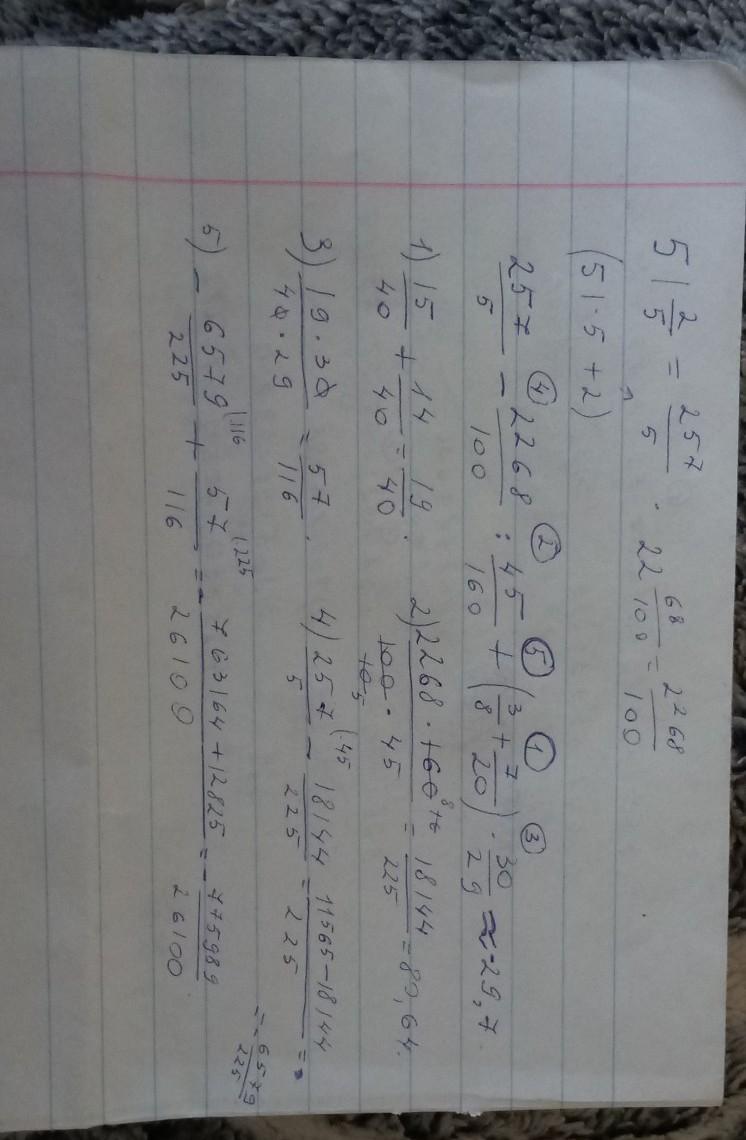 51 2/5 = 257/5 . 22 68/100 = 2268/100
(51·5+2)
④ ② ⑤ ① ③
257/5 - 2268/100 : 45/160 + (3/8 + 7/20) · 30/29 ≈ -29,7
1) 15/40 + 14/40 = 19/40. 2) 2268·160/100·45 = 18144/225 = 80,64.
3) 19·30/40·29 = 57/116. 4) 257/5 (·45 - 18144/225 = 11565-18144/225 =
= - 6579/225
5) - 6579/225 (·116 + 57/116 (·225 = - 763164+12825/26100 = - 775989/26100